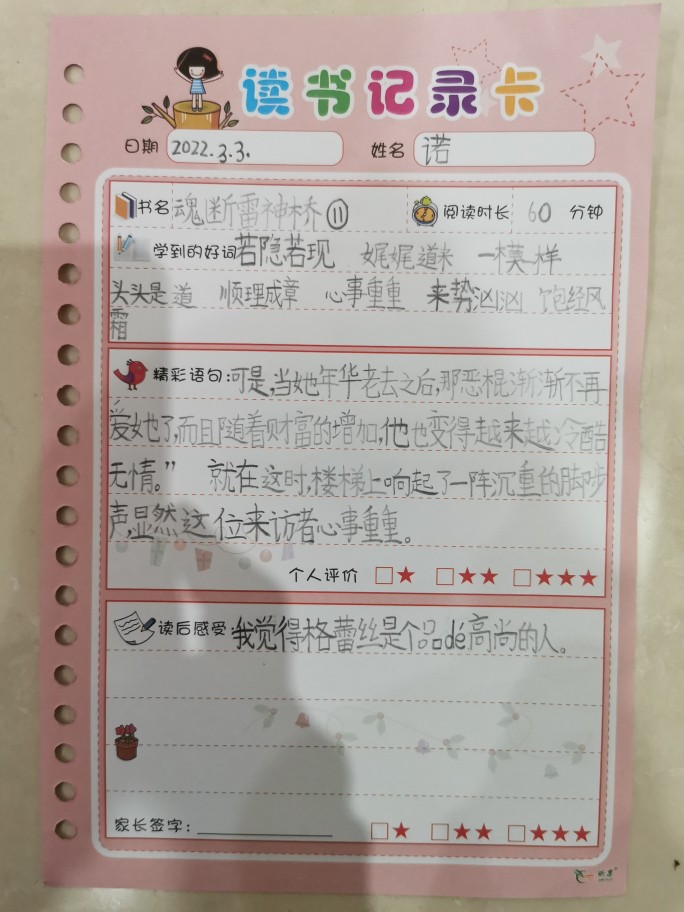 读书记录卡
日期 2022.3.3. 姓名 诺
书名 魂断雷神桥⑪ 阅读时长 60 分钟
学到的好词 若隐若现 娓娓道来 一模一样
头头是道 顺理成章 心事重重 来势汹汹 饱经风
霜
精彩语句:可是,当她年华老去之后,那恶棍渐渐不再
爱她了,而且随着财富的增加,他也变得越来越冷酷
无情。” 就在这时,楼梯上响起了一阵沉重的脚步
声,显然这位来访者心事重重。
个人评价 □★ □★★ □★★★
读后感受:我觉得格蕾丝是个品dé高尚的人。
家长签字:
□★ □★★ □★★★